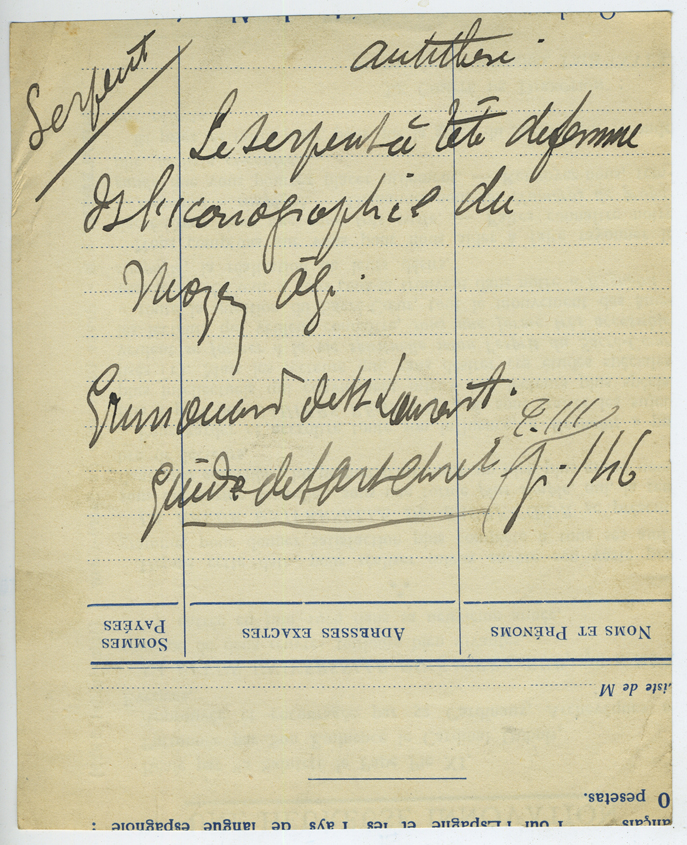 Serpent
antithèse.
Le serpent à tête de femme
Ds l'iconographie du
Moyen Âge.
Grimouard de St Laurent.
Guide de l'art chret T. III
p. 146
NOMS ET PRÉNOMS
ADRESSES EXACTES
SOMMES PAYÉES
iste de M
0 pesetas.
ançais Pour l'Espagne et les Pays de langue espagnole :